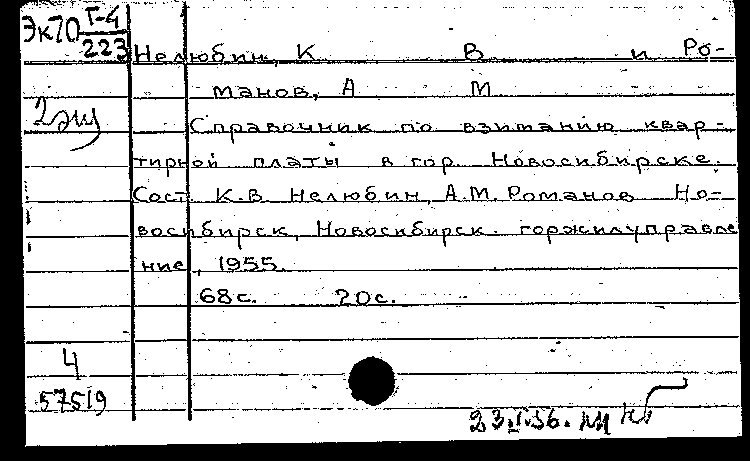 Эк70 Г-4
223
Нелюбин, К В и Ро-
манов, А М
2 экз
Справочник по взиманию квар-
тирной платы в гор. Новосибирске.
Сост. К.В. Нелюбин, А.М. Романов Но-
восибирск, Новосибирск. горжилуправле
ние, 1955.
68с. 20с.
4
57519
23.I.56.